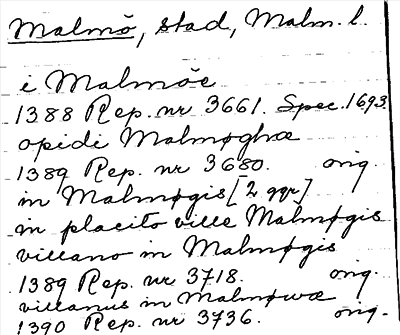 Malmö, stad, Malm. l.
i Malmöe
1388 Rep. nr 3661. Spec. 1693.
opidi Malmøghæ
1389 Rep. nr 3680. orig
in Malmøgis [2 ggr]
in placito ville Malmøgis
villano in Malmøgis
1389 Rep. nr 3718. orig.
villanus in Malmøwæ
1390 Rep. nr 3736. orig.